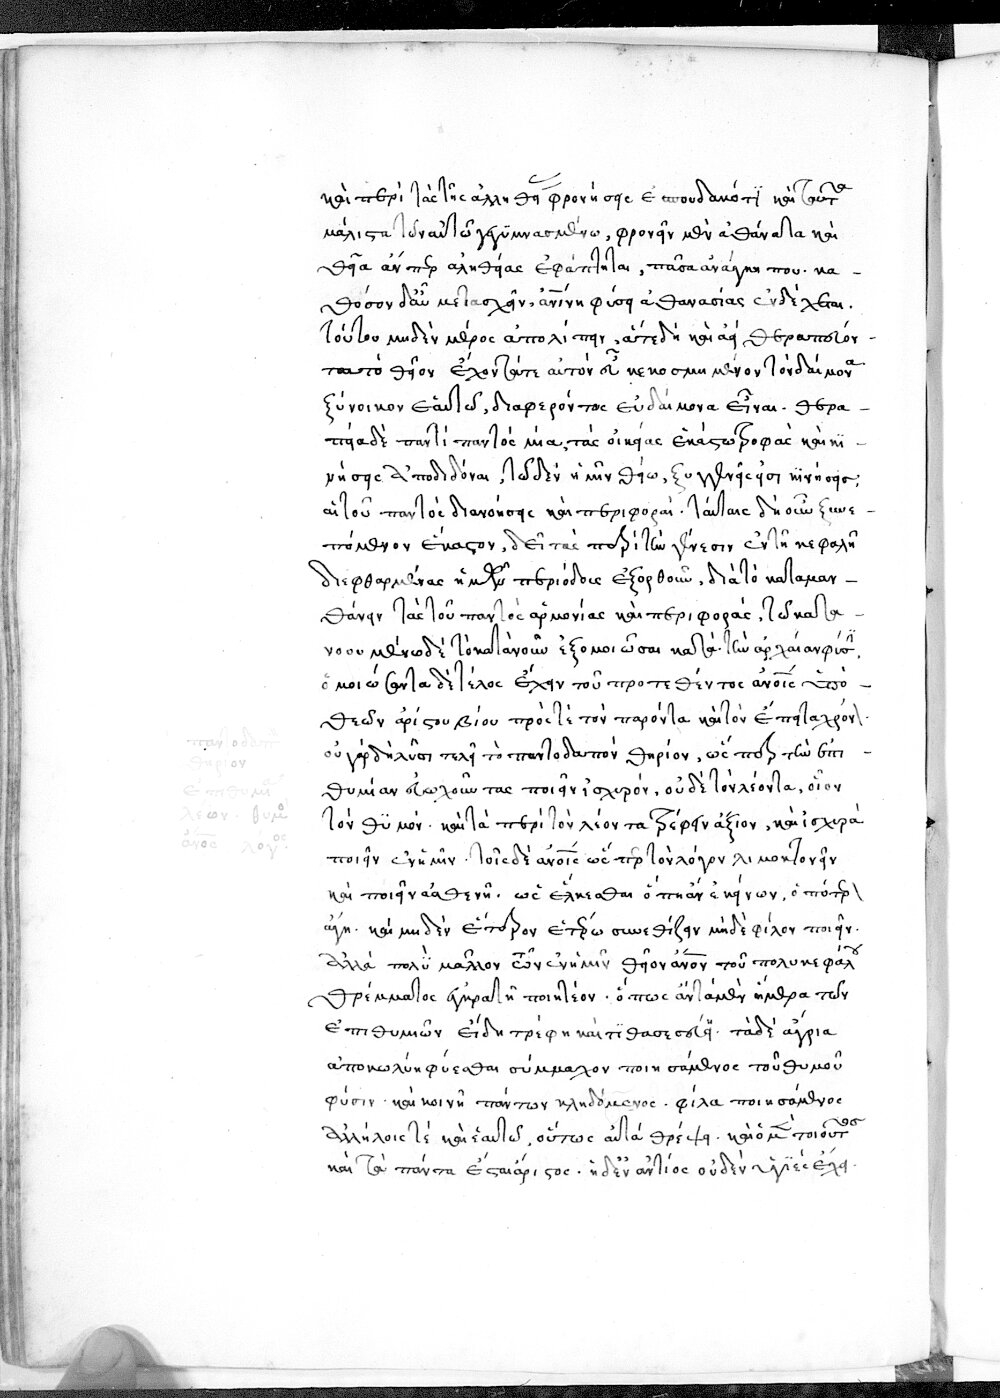 καὶ περὶ τὰς τῆς ἀληθῆ φρονήσεις ἐσπουδακότι καὶ ταῦτα
μάλιστα τῶν αὐτοῦ γεγυμνασμένω, φρονεῖν μὲν ἀθάνατα καὶ
θεῖα ἄν περ ἀληθείας ἐφάπτηται, πᾶσα ἀνάγκη που. κα-
θόσον δ' αὖ μετασχεῖν, ἀνθρωπίνη φύσει ἀθανασίας ἐνδέχεται.
τούτου μηδὲν μέρος ἀπολείπειν, ἅτε δὴ καὶ ἀεὶ θεραπεύον-
τα τὸ θεῖον ἔχοντά τε αὐτὸν εὖ κεκοσμημένον τὸν δαίμονα
ξύνοικον ἑαυτῶ, διαφερόντως εὐδαίμονα εἶναι. θερα-
πεία δὲ παντὶ παντὸς μία, τὰς οἰκείας ἑκάστω τροφὰς καὶ κι-
νήσεις ἀποδιδόναι, τῶ δ' ἐν ἡμῖν θείω, ξυγγενεῖς εἰσι κινήσεις,
αἱ τοῦ παντὸς διανοήσεις καὶ περιφοραί. ταύταις δὴ οὖν ξυνε-
πόμενον ἕκαστον, δεῖ τὰς περὶ τὴν γένεσιν ἐν τῆ κεφαλῆ
διεφθαρμένας ἡμῶν περιόδοις ἐξορθοῦν, διὰ τὸ καταμαν-
θάνειν τὰς τοῦ παντὸς ἁρμονίας καὶ περιφοράς, τῶ κατα-
νοουμένω δὲ τὸ κατανοοῦν ἐξομοιῶσαι κατὰ τὴν ἀρχαίαν φύσιν,
ὁμοιώσαντα δὲ τέλος ἔχειν τοῦ προτεθέντος ἀνθρώποις ὑπὸ
θεῶν ἀρίστου βίου πρός τε τὸν παρόντα καὶ τὸν ἔπειτα χρόνον.
οὐ γὰρ δὴ λυσιτελεῖ τὸ παντοδαπὸν θηρίον, ὥσπερ τὴν ἐπι-
θυμίαν εὐωχοῦντας ποιεῖν ἰσχυρόν, οὐδὲ τὸν λέοντα, οἷον
τὸν θυμόν. καὶ τὰ περὶ τὸν λέοντα τρέφειν ἄξιον, καὶ ἰσχυρὰ
ποιεῖν ἐν ἡμῖν. τοῖς δὲ ἀνθρώποις ὥσπερ τὸν λόγον λιμοκτονεῖν
καὶ ποιεῖν ἀσθενῆ. ὡς ἕλκεσθαι ὅπη ἂν ἐκείνων, ὁπότερον
ἄγη. καὶ μηδὲν ἕτερον ἑτέρω συνεθίζειν μηδὲ φίλον ποιεῖν.
ἀλλὰ πολὺ μᾶλλον τὸν ἐν ἡμῖν θεῖον ἄνθρωπον τοῦ πολυκεφάλου
θρέμματος ἐγκρατῆ ποιητέον. ὅπως ἂν τὰ μὲν ἥμερα τῶν
ἐπιθυμιῶν εἴδη τρέφη καὶ τιθασεύη. τὰ δὲ ἄγρια
ἀποκωλύη φύεσθαι σύμμαχον ποιησάμενος τοῦ θυμοῦ
φύσιν. καὶ κοινῆ πάντων κηδόμενος. φίλα ποιησάμενος
ἀλλήλοις τὲ καὶ ἑαυτῶ, οὕτως αὐτὰ θρέψει. καὶ ὁ μὲν τοιοῦτος
καὶ τὰ πάντα ἔσται ἄριστος. ὁ δ' ἐναντίος οὐδὲν ὑγιὲς ἔχει.
παντοδαπὸν
θηρίον
ἐπιθυμία
λέων. θυμός
ἄνθρωπος λόγος.